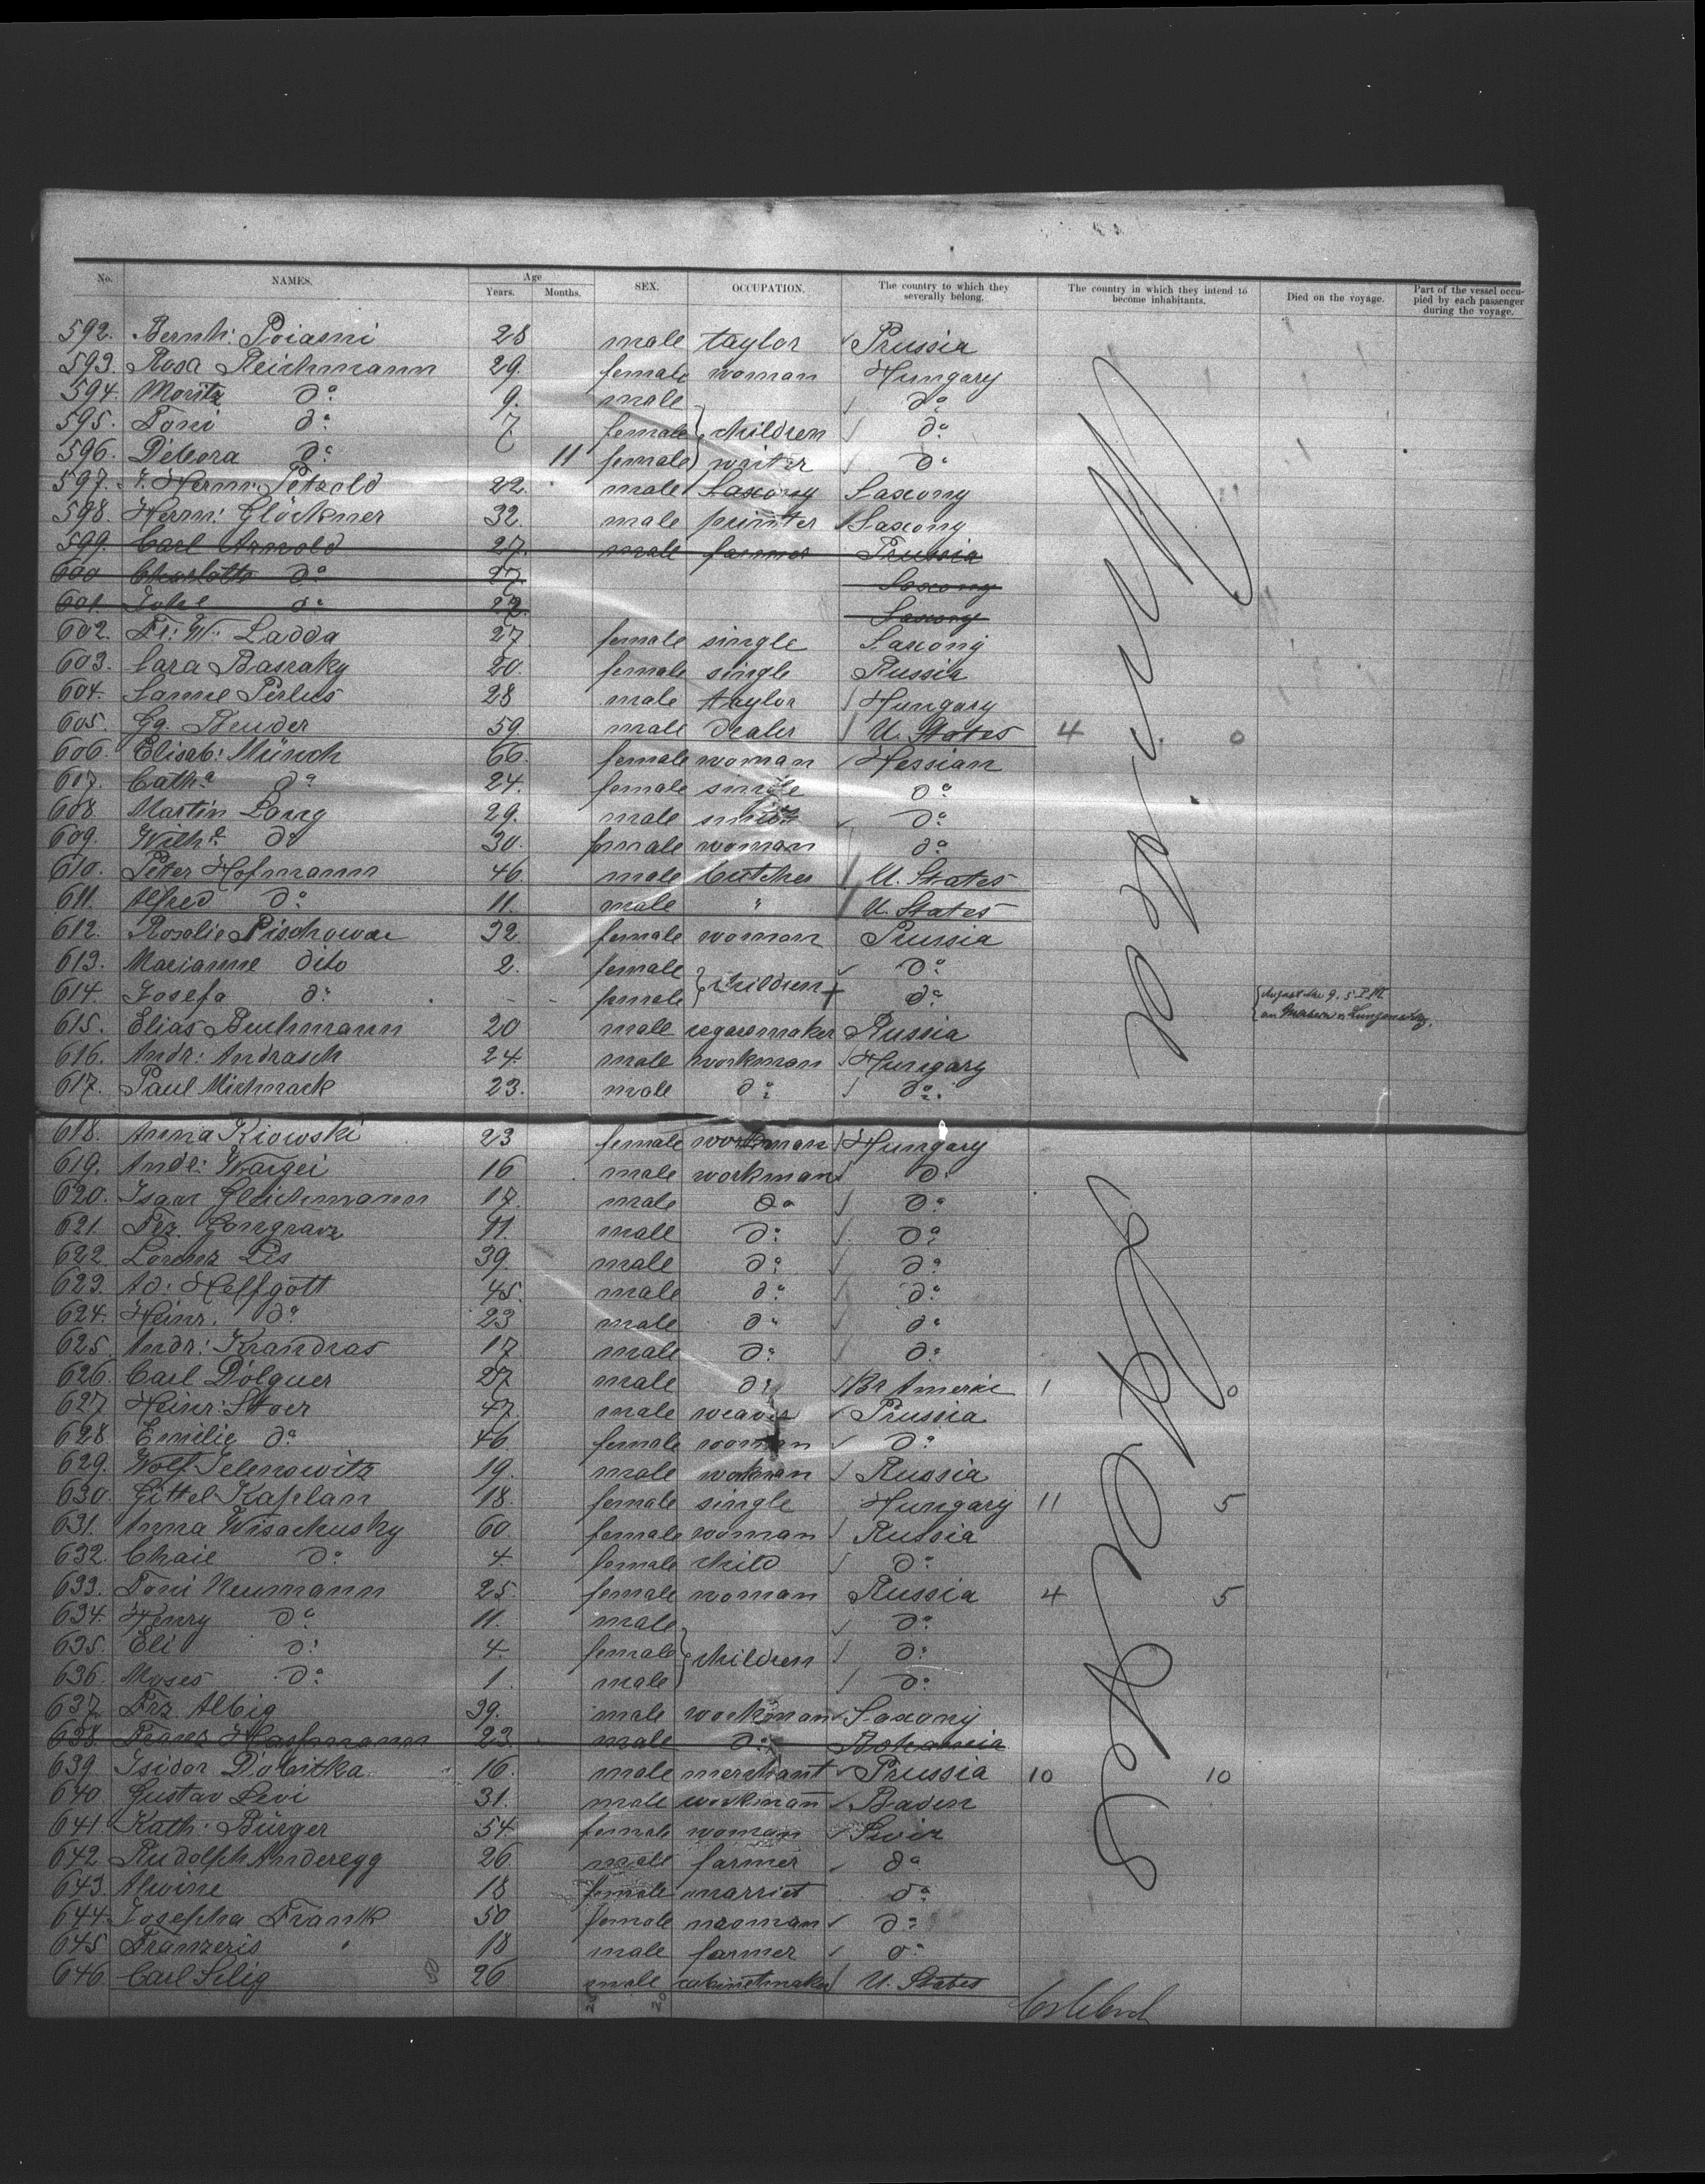 No. NAMES. Age Years. Months. SEX. OCCUPATION. The country to which they severally belong. The country in which they intend to become inhabitants. Died on the voyage. Part of the vessel occupied by each passenger during the voyage.
592. Bernh: Poiasni 28 male taylor Prussia
593. Rosa Reichmann 29. female woman Hungary
594. Moritz do 9. male do
595. Toni do 7 female children do
596. Debora do 11 female waiter do
597. F. Herm: Petzold 22 male Saxony Saxony
598. Herm: Glöckner 32. male printer Saxony
599. Carl Arnold 27. male farmer Prussia
600 Charlotte do 27 Saxony
601. do 22. Saxony
602. Fr: W: Ladda 27 female single Saxony
603. Cara Basraky 20. female single Russia
604. Sanne Perlus 28 male taylor Hungary
605. Gg. Reuder 59. male dealer U. States 4 0
606. Elisab: Münch 66. female woman Hessian
607. Catha do 24. female single do
608. Martin Lang 29. male smith do
609. Wilhe do 30. female woman do
610. Peter Hofmann 46 male butcher U. States
611. Alfred do 11. male " U. States
612. Rosalie Pischowar 32 female woman Prussia
613. Marianne dito 2. female children do
614. Josefa do - - female + do
615. Elias Buchmann 20 male cegarsmaker Russia
616. Andr: Andrasch 24. male workman Hungary
617. Paul Michnack 23. male do do
618. Anna Kiowski 23 female workman Hungary
619. Andr: Wargei 16 male workman do
620. Isaar Gleichmann 17. male do do
621. Frz. Longravz 41. male do do
622 Lorenz Les 39. male do do
623. Ad: Helfgott 45. male do do
624. Heinr. do 23 male do do
625. Andr: Krandras 17 male do do
626. Carl Dolguer 27 male do Br Americ 1 0
627 Heinr: Stoer 47. male weaver Prussia
628 Emilie do 46. female woman do
629. Wolf Selenowitz 19. male workman Russia
630. Gittel Kaplan 18. female single Hungary 11 5
631. Anna Wisachusky 60. female woman Russia
632. Chaie do 4. female child do
633. Toni Neumann 25. female woman Russia 4 5
634. Henry do 11. male do
635. Eli do 4. female children do
636. Moses do 1. male do
637. Frz. Albig 39. male workman Saxony
638. Franz Hasfmann 23. male do Bohamia
639. Isidor Dobitka 16. male merchant Prussia 10 10
640. Gustav Levi 31. male workmann Baden
641. Kath: Bürger 54. female woman Swiz
642 Rudolph Anderegg 26. male farmer do
643 Alwine 18 female marriet do
644. Josepha Frank 50 female woman do
645 Franzeris 18 male farmer do
646. Carl Selig 26 male cabinetmaker U. States